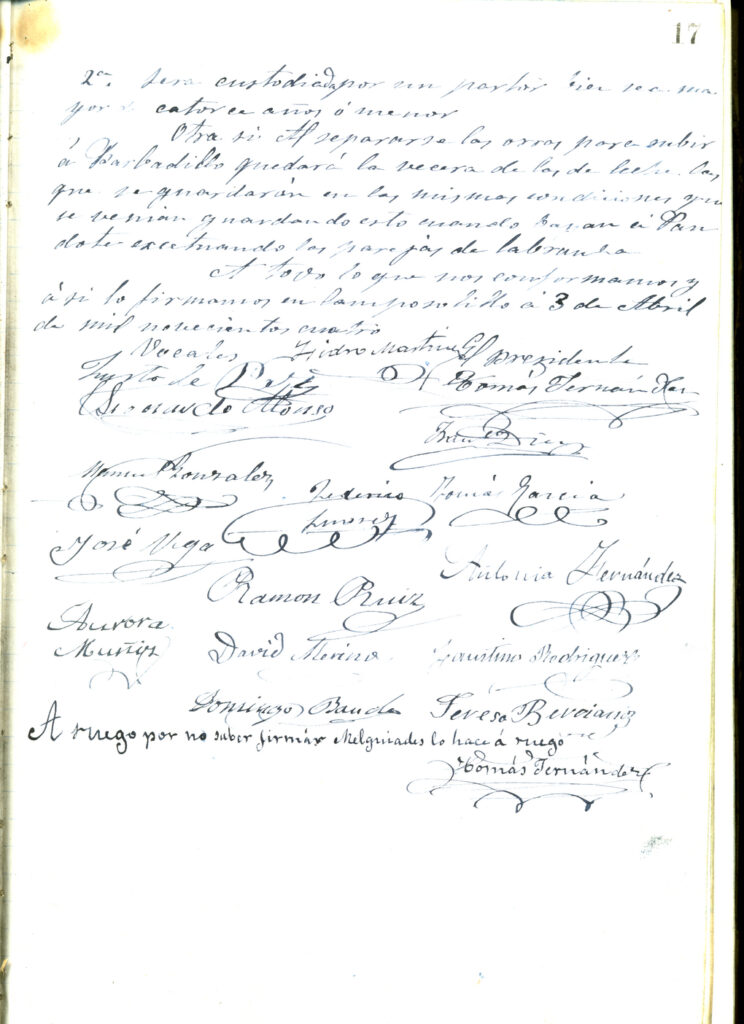 17
2ª. sera custodiada por un pastor bien sea ma
yor de catorce años ó menor
Otra si Al separarse las orras para subir
á Barbadillo quedará la vecera de las de leche. las
que se guardarán en las mismas condiciones que
se venian guardando esto cuando bajan á Pan
dote excetuando las parejas de labranza
A todo lo que nos conformamos y
á si lo firmamos en Camposolillo á 3 de Abril
de mil novecientos cuatro
Vocales Isidro Martinez El presidente
Justo de Tomás Fernández
Alonso
Diez
Gonzalez Federico Tomás Garcia
José Vega
Ramon Ruiz Antonia Hernández
Aurora
Muñiz David Merino Faustino Rodriguez
Domingo Banda Teresa Berciano
A ruego por no saber firmár Melquiades lo hace á ruego
Tomás Fernández